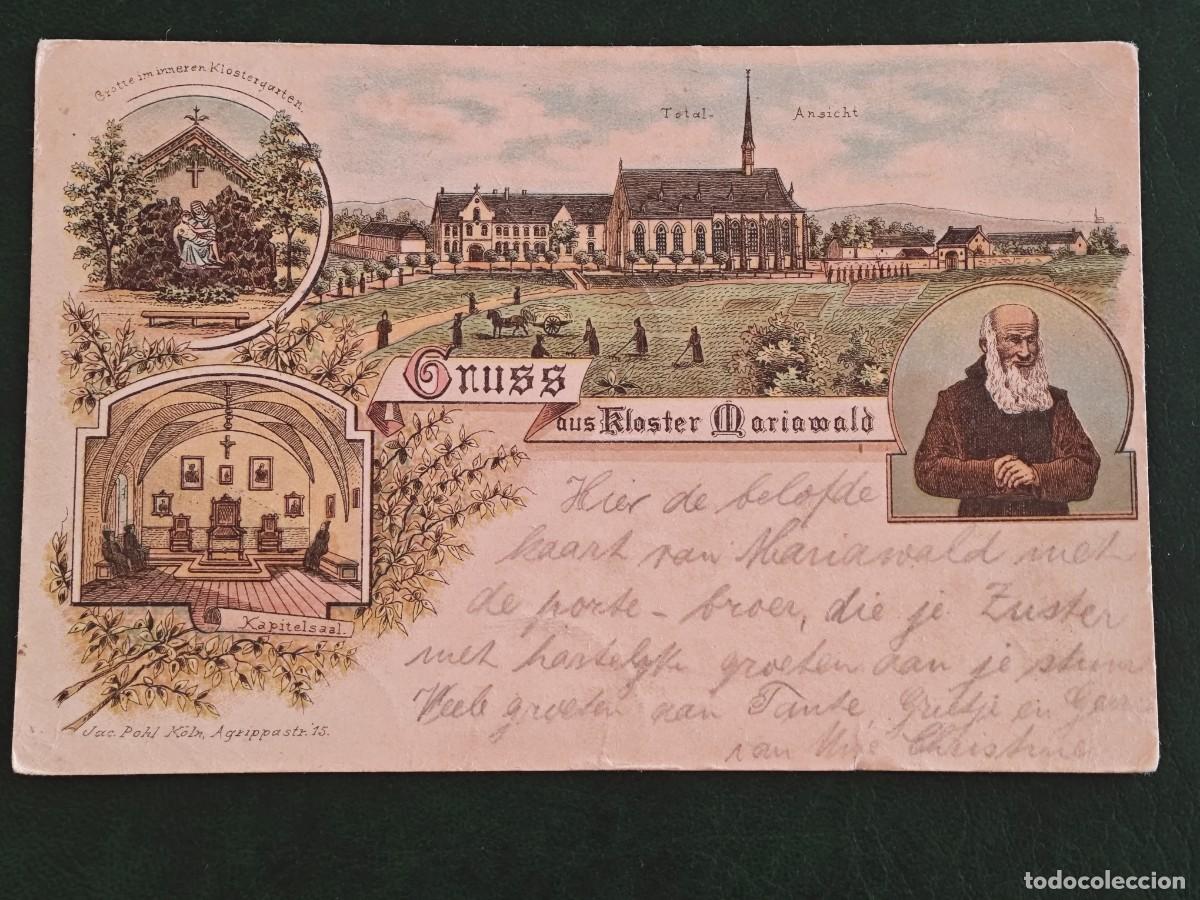 Grotte im inneren Klostergarten.
Total- Ansicht
Gruss
aus Kloster Mariawald
Kapitelsaal.
Jac. Pohl Köln, Agrippastr. 15.
Hier de belofde
kaart van Mariawald met
de porte-broer, die je Zuster
met hartelijke groeten aan je stuurt
Veele groeten aan Tante, Grietje en
van Christine
todocoleccion